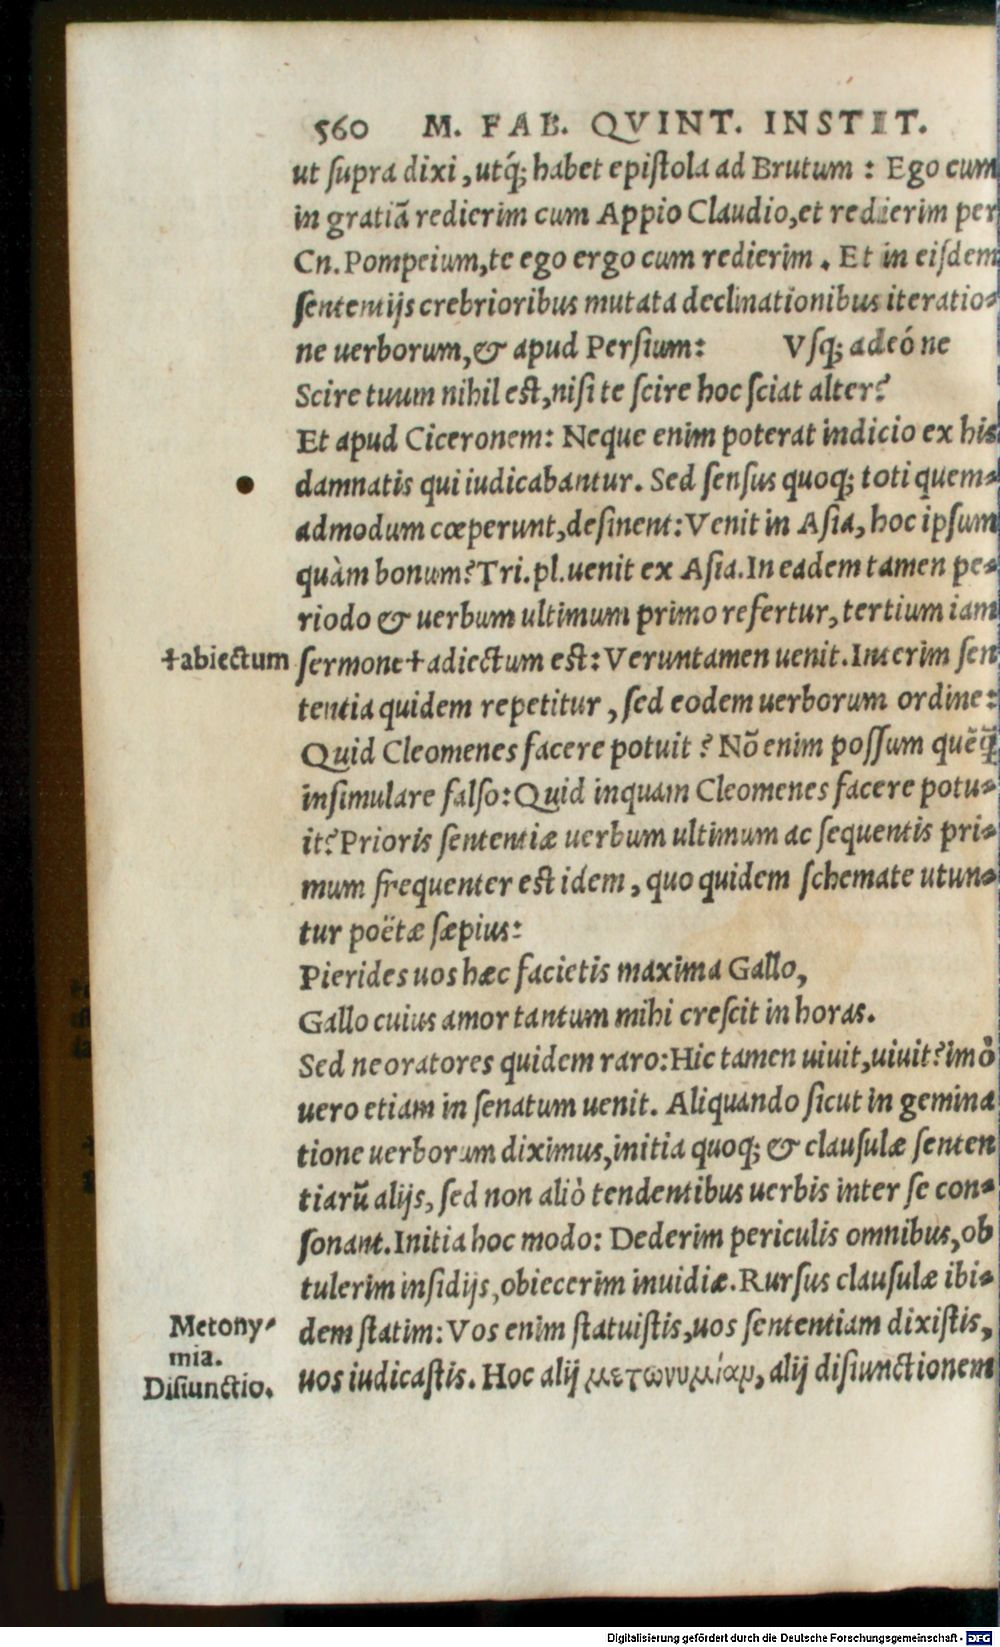 560 M. FAB. QVINT. INSTIT.
ut ſupra dixi, utq́; habet epiſtola ad Brutum: Ego cum
in gratiã redierim cum Appio Claudio, et redierim per
Cn. Pompeium, te ego ergo cum redierim. Et in eiſdem
ſententijs crebrioribus mutata declinationibus iteratio-
ne uerborum, & apud Perſium: Vſq; adeó ne
Scire tuum nihil eſt, niſi te ſcire hoc ſciat alter?
Et apud Ciceronem: Neque enim poterat indicio ex his
damnatis qui iudicabantur. Sed ſenſus quoq; toti quem-
admodum cœperunt, deſinent: Venit in Aſia, hoc ipſum
quàm bonum? Tri. pl. uenit ex Aſia. In eadem tamen pe-
riodo & uerbum ultimum primo refertur, tertium iam
†abiectum ſermone † adiectum eſt: Veruntamen uenit. Interim ſen
tentia quidem repetitur, ſed eodem uerborum ordine:
Quid Cleomenes facere potuit? Nõ enim poſſum quẽq̃
inſimulare falſo: Quid inquam Cleomenes facere potu-
it? Prioris ſententiæ uerbum ultimum ac ſequentis pri-
mum frequenter eſt idem, quo quidem ſchemate utun-
tur poëtæ ſæpius:
Pierides uos hæc facietis maxima Gallo,
Gallo cuius amor tantum mihi creſcit in horas.
Sed ne oratores quidem raro: Hic tamen uiuit, uiuit? imò
uero etiam in ſenatum uenit. Aliquando ſicut in gemina
tione uerborum diximus, initia quoq; & clauſulæ ſenten
tiarũ alijs, ſed non aliò tendentibus uerbis inter ſe con-
ſonant. Initia hoc modo: Dederim periculis omnibus, ob
tulerim inſidijs, obiecerim inuidiæ. Rurſus clauſulæ ibi-
Metony-
mia.
dem ſtatim: Vos enim ſtatuiſtis, uos ſententiam dixiſtis,
Diſiunctio.
uos iudicaſtis. Hoc alij μετωνυμίαν, alij diſiunctionem
Digitalisierung gefördert durch die Deutsche Forschungsgemeinschaft - DFG